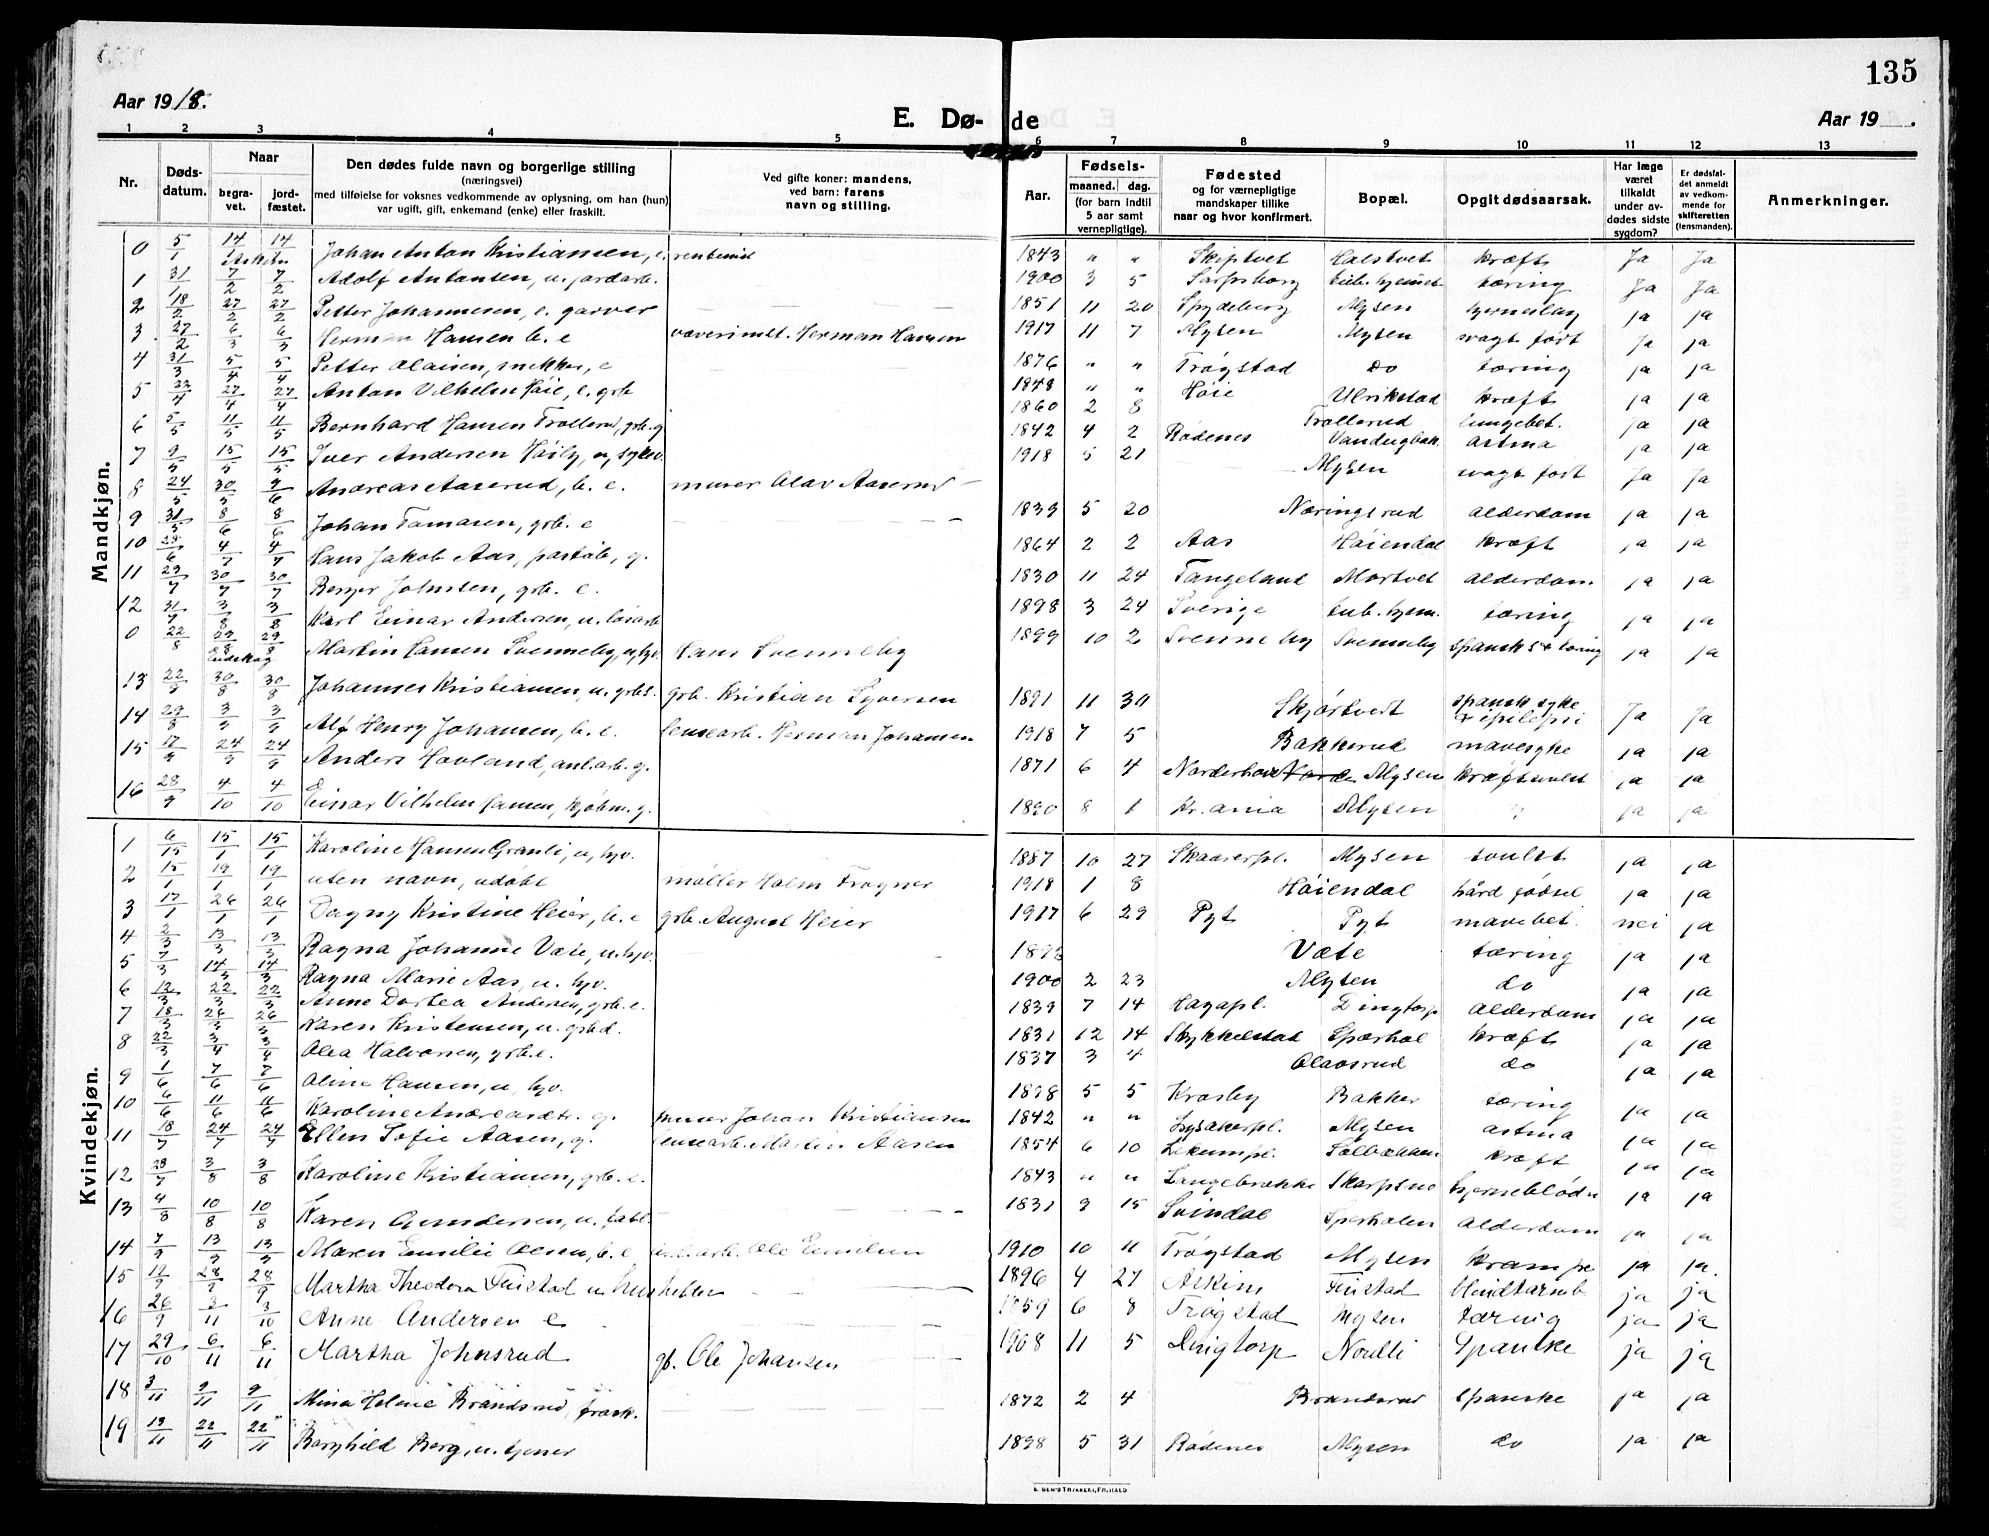 135
Aar 1918.
E. Dø- de
Aar 19 .
1 2 3 4 5 6 7 8 9 10 11 12 13
Nr. Døds-datum. Naar begra-vet. jord-fæstet. Den dødes fulde navn og borgerlige stilling (næringsvei) med tilføielse for voksnes vedkommende av oplysning, om han (hun) var ugift, gift, enkemand (enke) eller fraskilt. Ved gifte koner: mandens, ved barn: farens navn og stilling. Aar. Fødsels- maaned. dag. (for barn indtil 5 aar samt vernepligtige). Fødested og for værnepligtige mandskaper tillike naar og hvor konfirmert. Bopæl. Opgit dødsaarsak. Har læge været tilkaldt under av-dødes sidste sygdom? Er dødsfal-det anmeldt av vedkom-mende for skifteretten (lensmanden). Anmerkninger.
Mandkjøn.
0 5/1 14/1 14/1 Johan Anton Kristiansen, e. 1843 " " Skiptvet kræft Ja Ja
1 31/1 7/2 7/2 Adolf Antonsen, u. jordarb. 1900 3 5 Sarpsborg tub. hjemmet tæring Ja Ja
2 18/2 27/2 27/2 Petter Johannesen, e. garver 1851 11 20 Spydeberg Mysen hjerneslag ja ja
3 27/2 6/3 6/3 Herman Hansen b. e Herman Hansen 1917 11 7 Mysen Mysen svagt født Ja ja
4 31/3 5/4 5/4 Petter Olaisen, snekker, e 1876 " " Trøgstad Do tæring ja ja
5 22/4 27/4 27/4 Anton Vilhelm Høie, e. grb 1848 " " Høie Ulrikstad kræft ja ja
6 5/5 11/5 11/5 Bernhard Hansen Trollerud, grb. g 1860 2 8 Trollerud lungebet. ja ja
7 9/5 15/5 15/5 Iver Andersen Høiby, u, 1842 4 2 Rødenes astma ja ja
8 24/5 30/5 9/6 Andreas Aaserud, b. e. murer Olav Aaserud 1918 5 21 Mysen svagt født Ja Ja
9 31/5 8/6 8/6 Johan Tomasen, grb. e 1839 5 20 Næringsrud alderdom ja ja
10 28/6 4/7 4/7 Hans Jakob Aas, poståb, g. 1864 2 2 Aas Høiendal kræft ja ja
11 23/7 30/7 30/7 Berger Johnsen, grb. e. 1830 11 24 Tangeland Mortvet alderdom ja ja
12 31/7 3/8 3/8 Karl Einar Andersen, u. løsarb 1898 3 24 Sverige tub. hjem. tæring ja ja
0 22/8 29/8 29/8 Martin Hansen Svenneby, u, Hans Svenneby 1899 10 2 Svenneby Svenneby spansk s + tæring ja ja
Eidskog
13 30/8 30/8 Johannes Kristiansen, u. grbs. grb. Kristian Syversen 1891 11 30 Skjørtvedt spansk syke + epilepsi Ja Ja
14 29/8 3/9 3/9 Alf Henry Johansen, b. e. Herman Johansen 1918 7 5 Bakkerud mavesyke ja ja
15 17/9 24/9 24/9 Anders Hovland, anl. arb. g. 1871 6 4 Norderhov Mysen kræftsvulst ja ja
16 28/9 4/10 4/10 Einar Vilhelm Hansen, kjøbm. g. 1890 8 1 Kr.ania Mysen ja ja
Kvindekjøn.
1 15/1 15/1 Karoline Hansen Granli, u, hjv. 1887 10 27 Skaarerpl. Mysen svulst ja ja
2 15/1 19/1 19/1 uten navn, udøbt møller Holm Frogner 1918 1 8 Høiendal hård fødsel ja ja
3 17/1 26/1 26/1 Dagny Kristine Heier, b. e grb. August Heier 1917 6 29 Pyt Pyt mavebet. nei ja
4 2/3 13/3 13/3 Ragna Johanne Væte, u. hjv. Væte tæring ja ja
5 7/3 14/3 14/3 Ragna Marie Aas, u. hjv. 1900 2 23 Mysen do ja ja
6 12/3 22/3 22/3 Anne Dortea Andersen, grb. e. 1839 7 14 Hagapl. Dingtorp alderdom ja ja
7 18/3 26/3 26/3 Karen Kristensen, u. grbd. 1831 12 14 Skykkelstad kræft ja ja
8 22/3 3/4 3/4 Olea Halvorsen, grb. e. 1837 3 4 Olavsrud do ja ja
9 1/6 7/6 7/6 Oline Hansen, u, hjv. 1898 5 5 Krosby Bakker tæring ja ja
10 6/6 11/6 11/6 Karoline Andreasdt. g. murer Johan Kristiansen 1842 " " Lysakerpl. Mysen astma ja ja
11 18/7 24/7 24/7 Ellen Sofie Aasen, g. Martin Aasen 1854 6 10 Lekumpl. Solbakken kræft ja ja
12 28/7 3/8 3/8 Karoline Kristiansen, grb. e. 1843 " " Langebrække Skarpsno hjerneblødn ja ja
13 4/8 10/8 10/8 Karen Gundersen, u. fatt. 1831 9 15 Svindal Sparholen alderdom ja ja
14 7/9 13/9 13/9 Maren Emilie Olsen, b. e Ole Emilsen 1910 10 11 Trøgstad Mysen krampe ja ja.
15 28/9 28/9 Martha Theodora Fuistad u 1896 4 27 Askim Fuistad blindtarmb ja ja
16 26/9 3/11 3/10 Anne Andersen e 1859 6 8 Trøgstad Mysen tæring ja ja
17 29/10 6/11 6/11 Martha Johnsrud gb. Ole Johansen 1908 11 5 Dingtorp Nordli Spanske ja ja
18 3/11 9/11 9/11 Mina Helene Brandsrud, frask. 1872 2 4 Brandsrud spanske ja ja
19 13/11 22/11 22/11 Borghild Berg, u. tjener 1898 5 31 Rødenes Mysen do ja ja